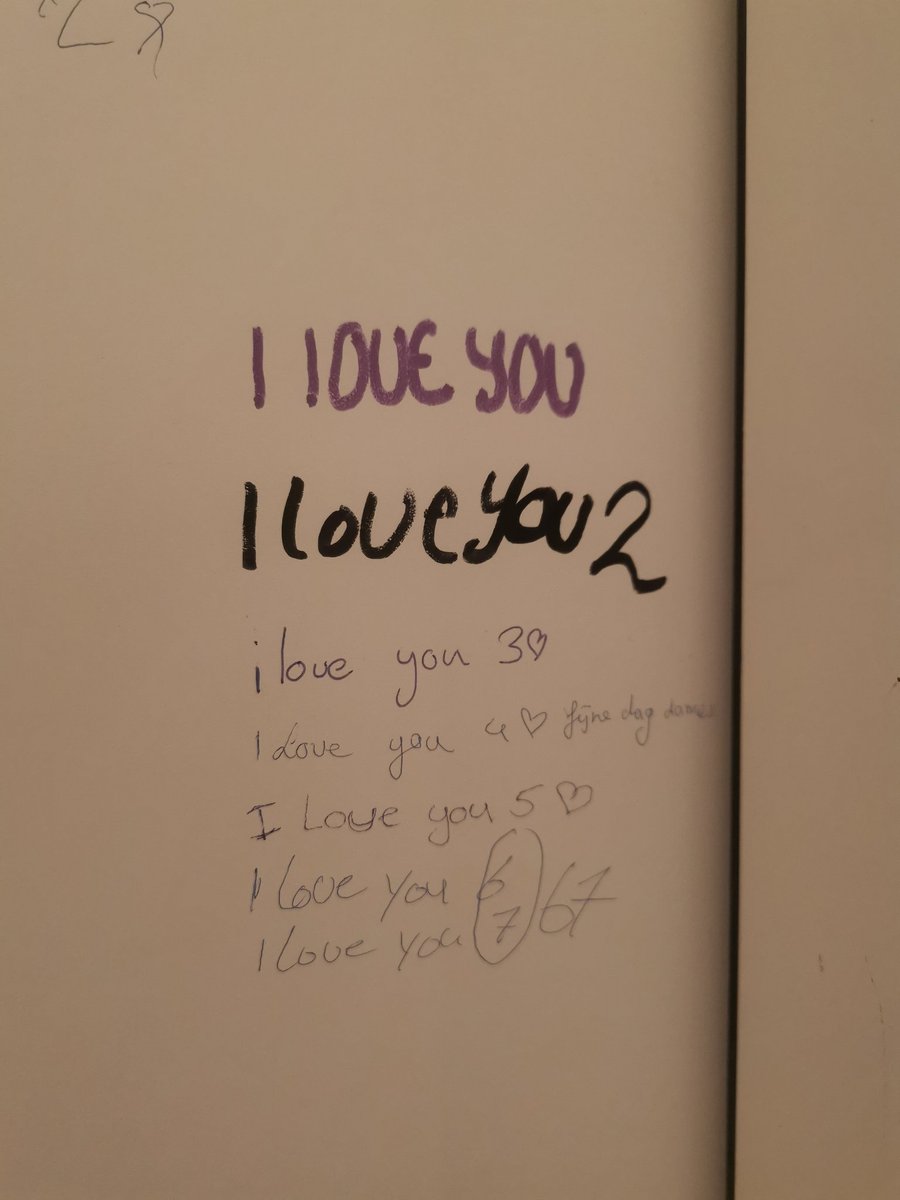 I lOVE YOU
I love you 2
i love you 3♡
I Love you 4♡ fijne dag dames
I Love you 5♡
I love you 6 67
I love you 7